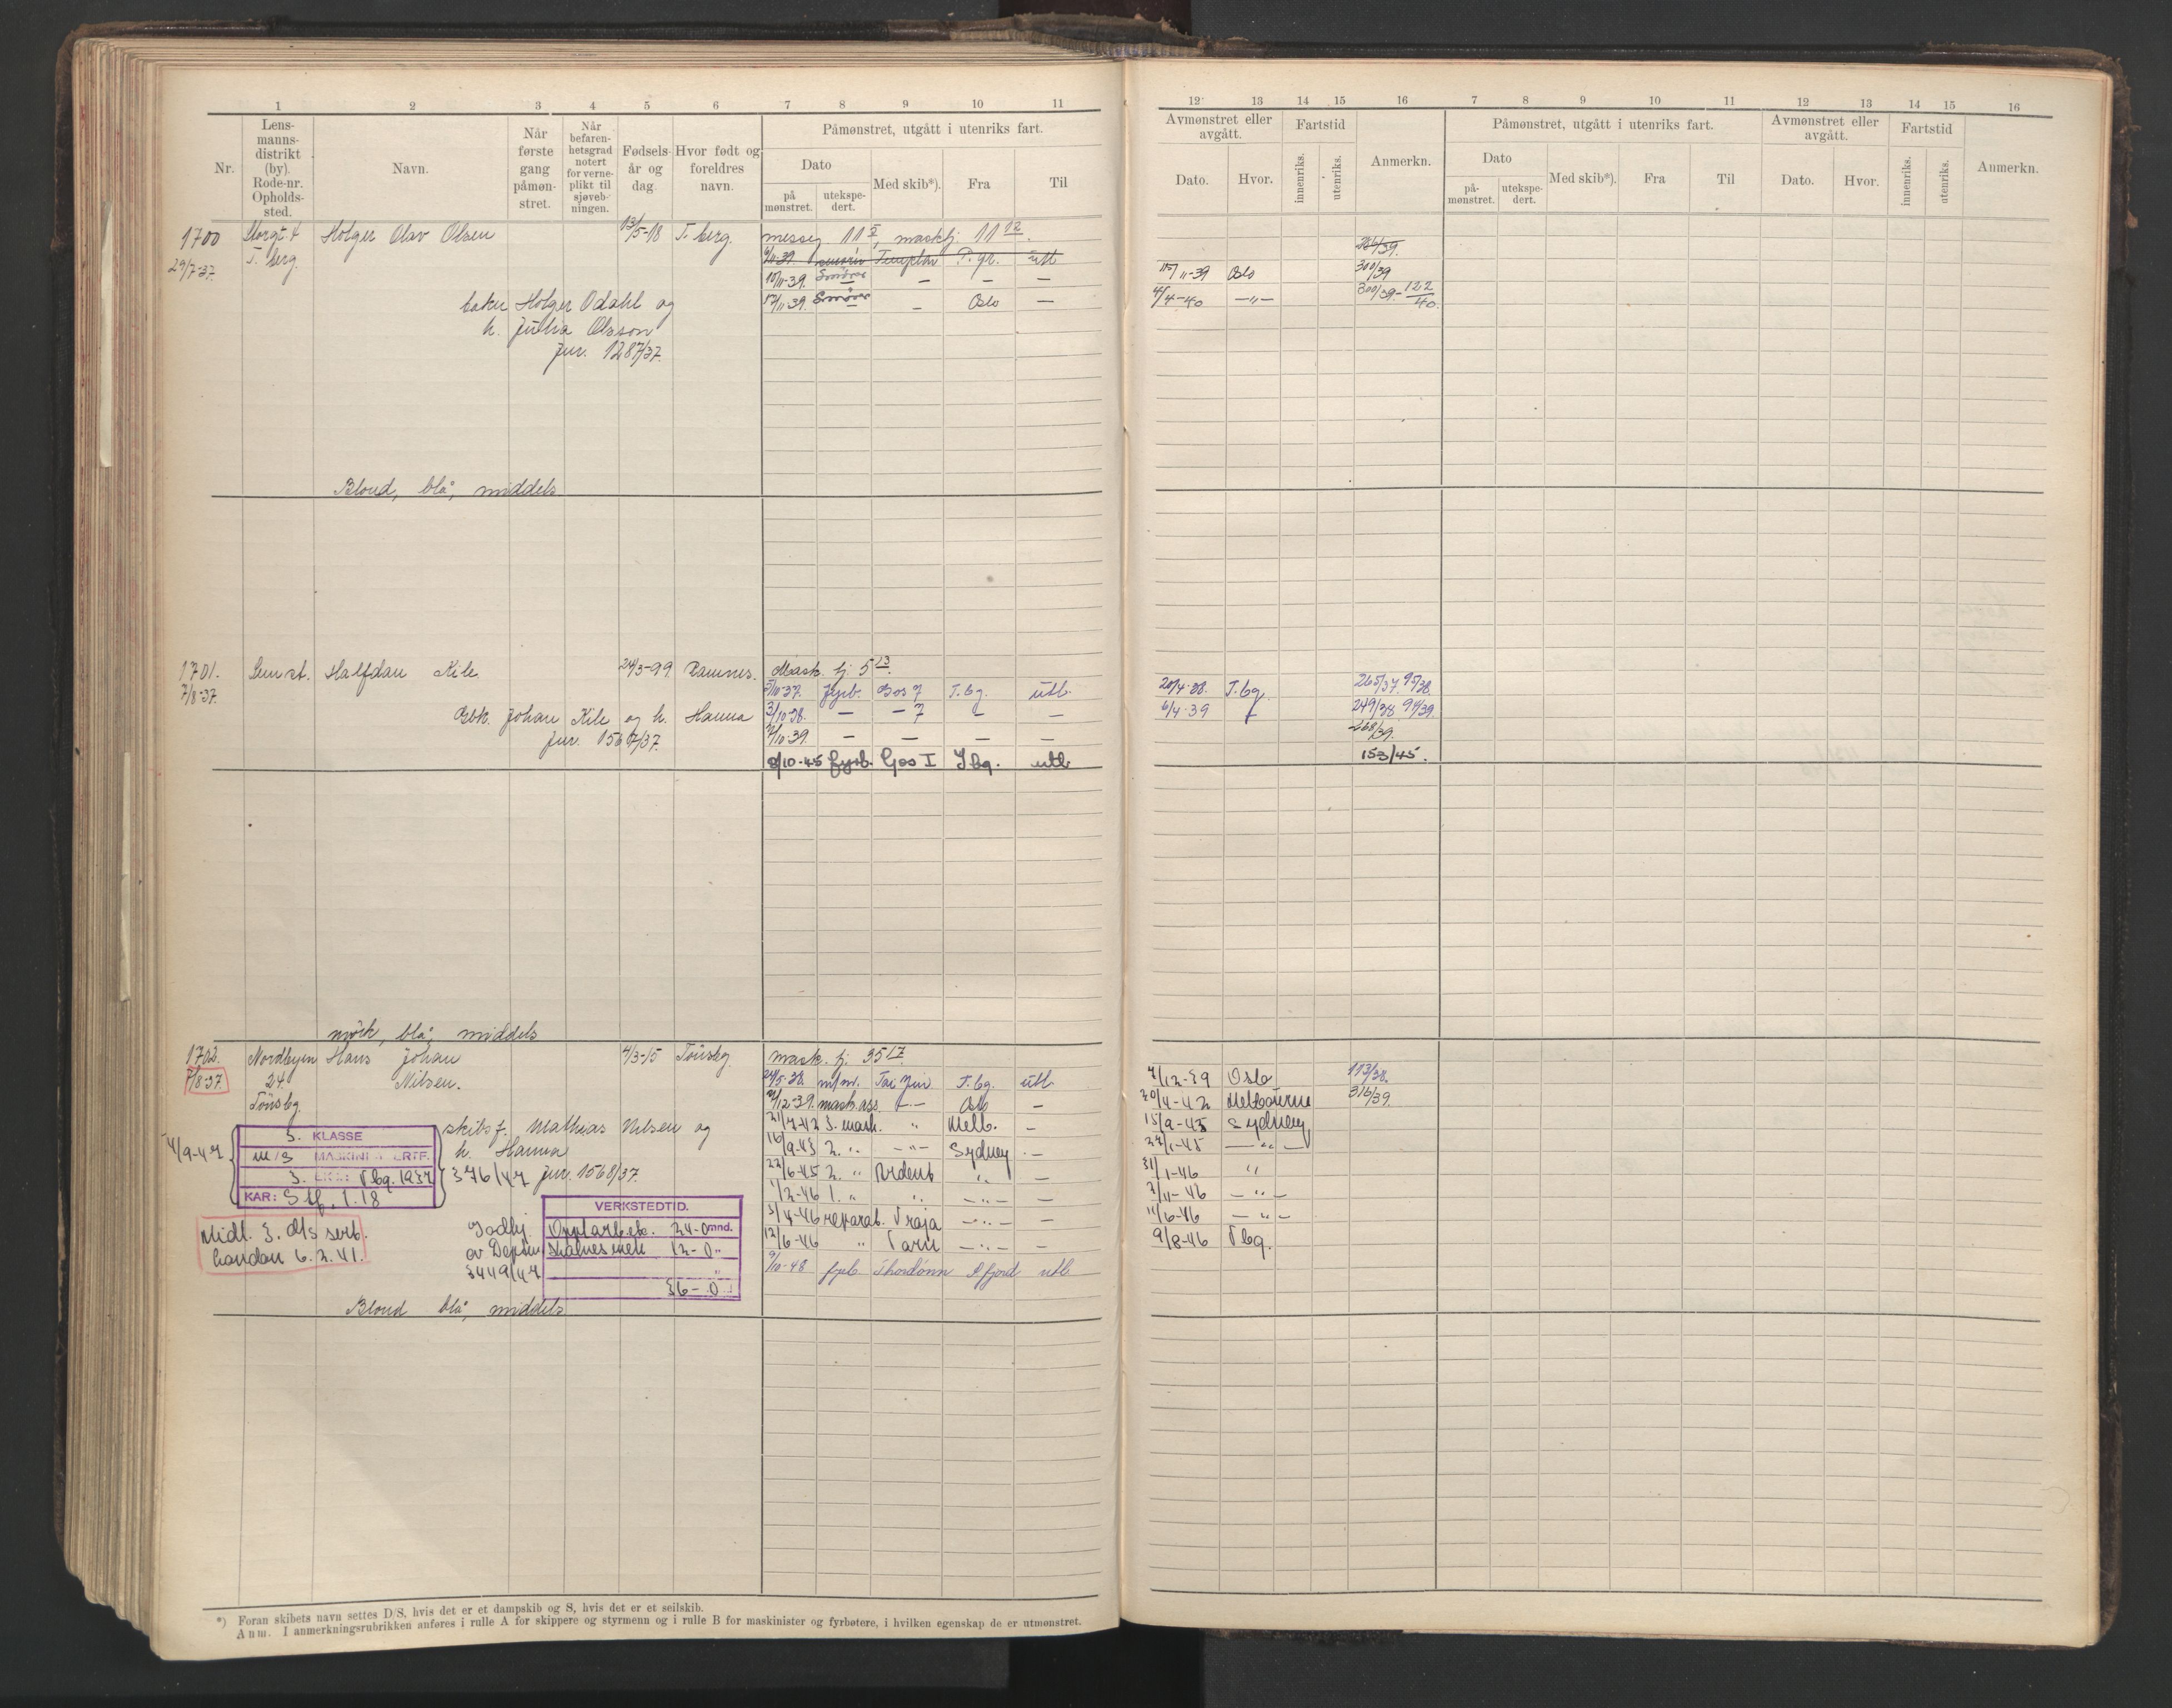 1 2 3 4 5 6 7 8 9 10 11
Nr.
Lens-
manns-
distrikt
(by).
Rode-nr.
Opholds-
sted.
Navn.
Når
første
gang
påmøn-
stret.
Når
befaren-
hetsgrad
notert
for verne-
plikt til
sjøveb-
ningen.
Fødsels-
år og
dag.
Hvor født og
foreldres
navn.
Påmønstret, utgått i utenriks fart.
Dato
på
mønstret.
utekspe-
dert.
Med skib*).
Fra
Til
1700 Holger Olav Olsen 13/5-18 T.berg. messeg. 11 maskbj. 11 12
29/7-37. T.berg. Templar utl
10/11-39. — — —
baker Holger Odahl og 17/11-39. — Oslo —
h. Julia Olsson
jnr. 1287/37.
Blond, blå, middels
1701. Halfdan Kile 24/3-99 Ramnes. Mask. bj. 5 13
7/8-37. 5/10-37. fyrb. Gos 7 T.bg. utl.
Johan Kile og h. Hanna 3/10-38. — — 7 — —
jnr. 1567/37. — — — —
8/10-45 fyrb. Gos I Tbg. utl
mørk, blå, middels
1702. Nordbyen Hans Johan 4/3-15 Tønsbg. mask. bj. 35 17
7/8-37. 24. Nilsen. 24/5-38. m/m. Tai Yin T.bg. utl.
Tønsbg. 12-39. mask.ass. — — Oslo —
skibsf. Mathias Nilsen og 21/7-42 3. mask. " Melb. —
h. Hanna 16/9-43 2. " — " — Sydney —
4/9-47 376/47 jnr. 1568/37. 22/6-45 2. " Ardent " —
3. KLASSE
M/S MASKINISTCERTF.
3. Tbg. 1937
KAR: 1.18
1/2-46 1. " " — " — —
3/4-46 reparat. Troja — " — —
12/6-46 " Tarn — " — —
9/10-48 fyrb. Thordønn utl
Midl. 3. M/S sert.
London 6.2.41.
Godkj.
av Depten
3449/47
VERKSTEDTID.
24-0 mnd.
12-0 "
"
36-0 "
Blond blå, middels
*) Foran skibets navn settes D/S, hvis det er et dampskib og S, hvis det er et seilskib.
Anm. I anmerkningsrubrikken anføres i rulle A for skippere og styrmenn og i rulle B for maskinister og fyrbøtere, i hvilken egenskap de er utmønstret.
12 13 14 15 16 7 8 9 10 11 12 13 14 15 16
Avmønstret eller
avgått.
Dato.
Hvor.
Fartstid
innenriks.
utenriks.
Anmerkn.
Påmønstret, utgått i utenriks fart.
Dato
på-
mønstret.
utekspe-
dert.
Med skib*).
Fra
Til
Avmønstret eller
avgått.
Dato.
Hvor.
Fartstid
innenriks.
utenriks.
Anmerkn.
11-39 Oslo 300/39
4/4-40 — " — 300/39 - 122/40.
20/4-38. T.bg. 265/37. 95/38.
6/4-39 249/38 91/39.
268/39.
153/45.
12-39 Oslo 113/38.
30/4-42 Melbourne 316/39.
15/9-43 Sydney
— " —
31/1-46 "
— " —
11/6-46 — " —
9/8-46 Tbg.